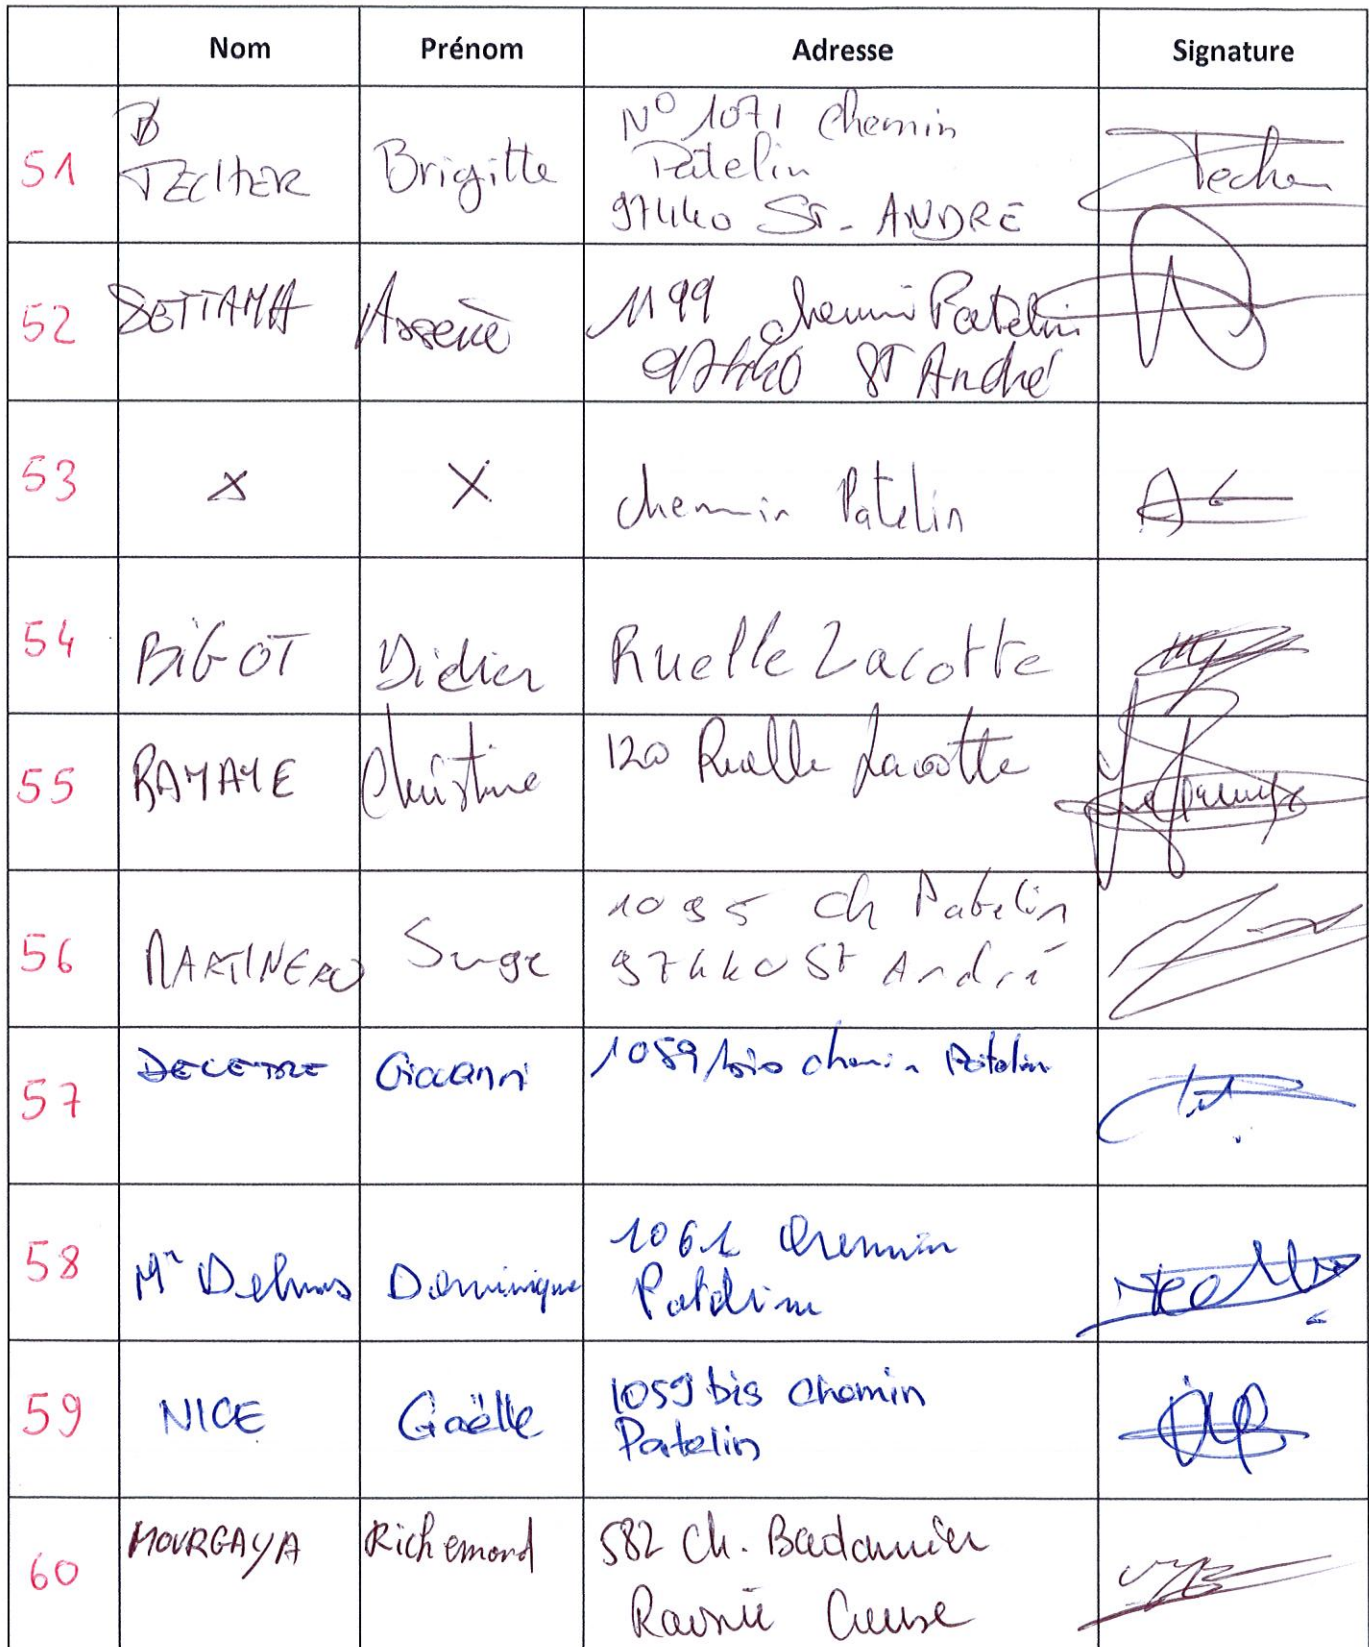 Nom Prénom Adresse Signature
51 TECHER Brigitte N° 1071 Chemin
Patelin
97440 St - ANDRE Techer
52 SETTAMA Arsène 1199 chemin Patelin
97440 ST André
53 X X chemin Patelin
54 BIGOT Didier Ruelle Lacotte
55 RAMAYE Christine 120 Ruelle Lacotte
56 Serge 1095 ch Patelin
97440 St André
57 Giovanni 1059 bis chemin Patelin
58 Mr Delmas Dominique 1061 Chemin
Patelin
59 NICE Gaëlle 1059 bis chemin
Patelin
60 MOURGAYA Richemond 582 Ch. Badamier
Ravine Creuse